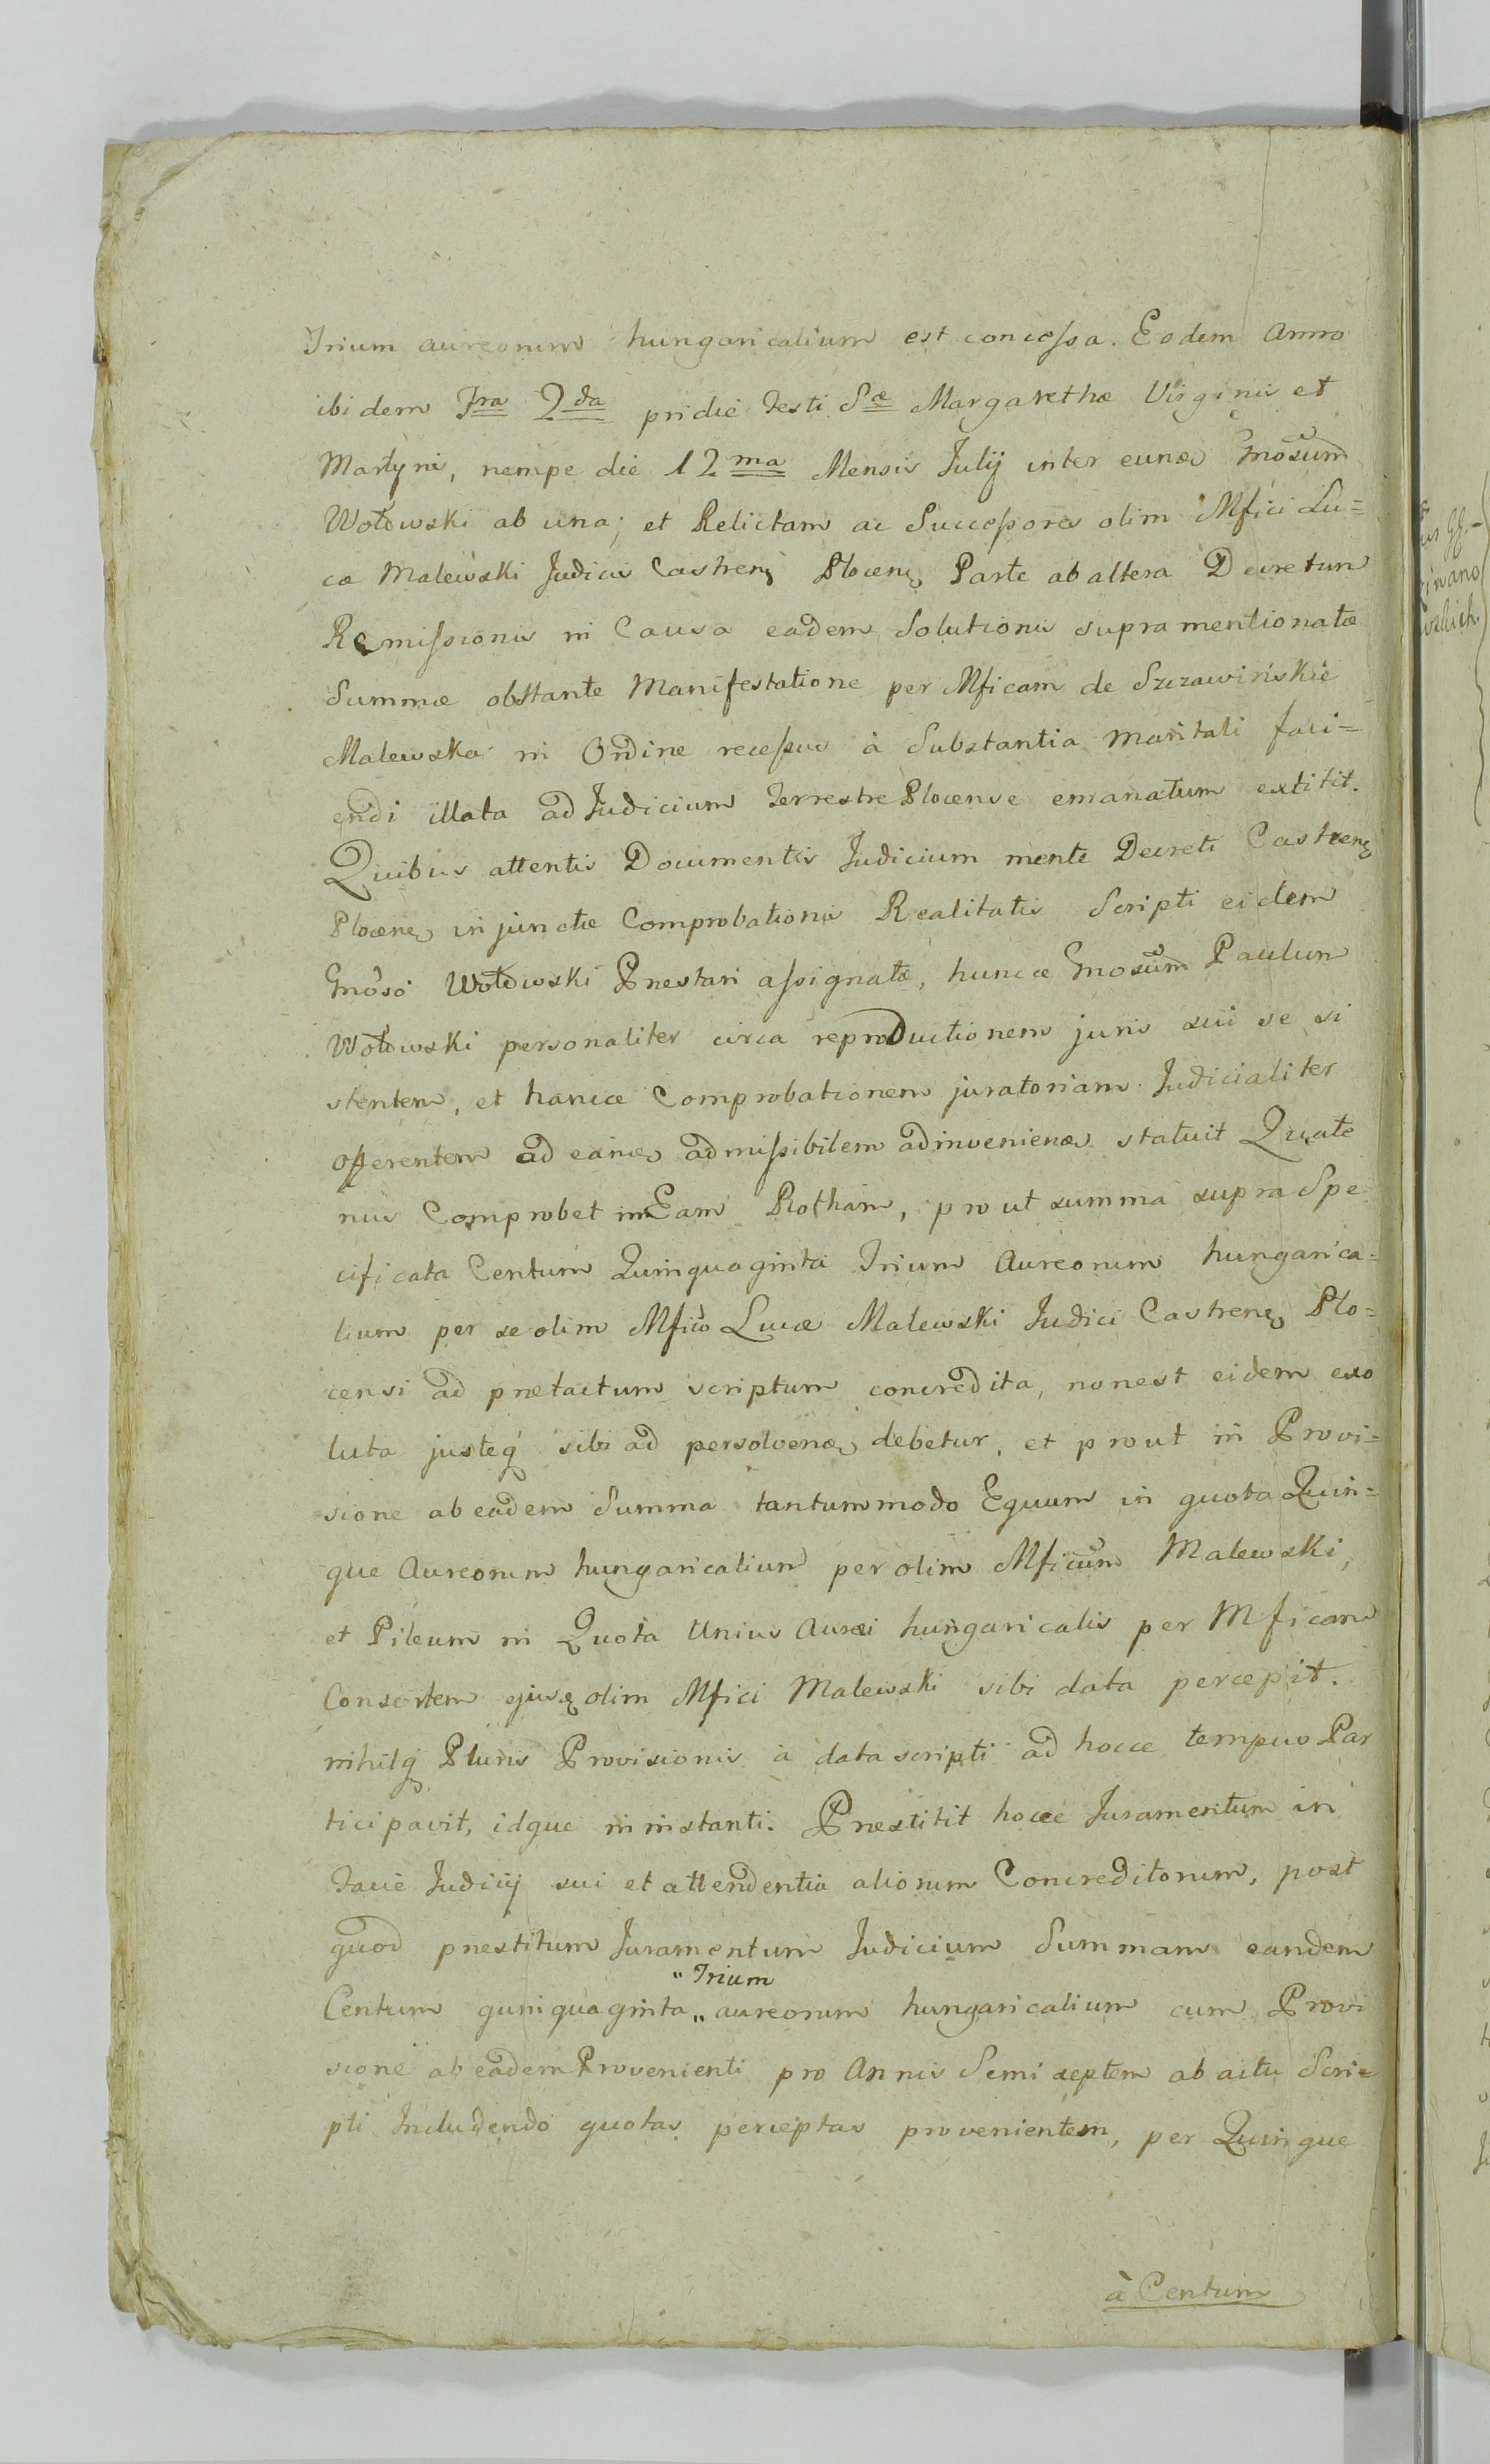 Trium aureorum hungaricalium est concessa. Eodem Anno
ibidem Fra 2da pridie Festi Sæ Margarethæ Virginis et
Martyris, nempe die 12ma Mensis Julij inter eund Gnosum
Wołowski ab una; et Relictam ac Successores olim Mfici Lu=
cæ Malewski Judicis Castren Plocen Parte ab altera Decretum
Remissionis in Causa eadem Solutionis supramentionatæ
Summæ obstante Manifestatione per Mficam de Szczawińskie
Malewska in Ordine recessus à Substantia maritali faci=
endi illata ad Judicium Terrestre Plocense emanatum extitit.
Quibus attentis Documentis Judicium mente Decreti Castren
Plocen injunctæ Comprobationis Realitatis Scripti eidem
Gnoso Wołowski Præstari assignatæ, huncce Gnosum Paulum
Wołowski personaliter circa reproductionem juris sui se si
stentem, et hancce Comprobationem juratoriam Judicialiter
offerentem ad eand admissibilem adinveniend statuit Quate
nus Comprobet in Eam Rotham, prout summa supra Spe
cificata Centum Quinquaginta Trium Aureorum hungarica=
lium per se olim Mfico Lucæ Malewski Judici Castren Plo=
censi ad prætactum scriptum concredita, non est eidem exo
luta justeq sibi ad persolvend debetur, et prout in Provi=
sione ab eadem Summa tantummodo Equum in quota Quin=
que Aureorum hungaricalium per olim Mficum Malewski,
et Pileum in Quota Unius Aurei hungaricalis per Mficam
Consortem ejusq olim Mfici Malewski sibi data percepit.
nihilq Pluris Provisionis à data scripti ad hocce tempus Par
ticipavit, idque in instanti. Præstitit hocce Juramentum in
Facie Judicij sui et attendentia aliorum Concreditorum, post
quod præstitum Juramentum Judicium Summam eandem
" Trium
Centum quinquaginta " aureorum hungaricalium cum Provi
sione ab eadem Provenienti pro Annis Semi septem ab actu Scri=
pti Includendo quotas perceptas provenientem, per Quinque
à Centum